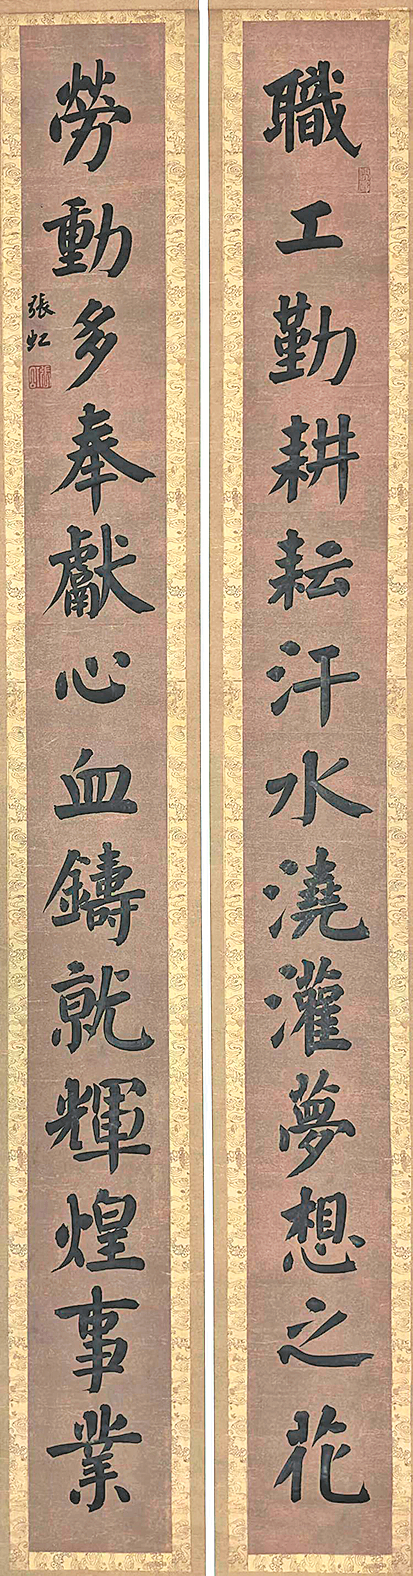 職工勤耕耘汗水澆灌夢想之花
勞動多奉獻心血鑄就輝煌事業
張虹